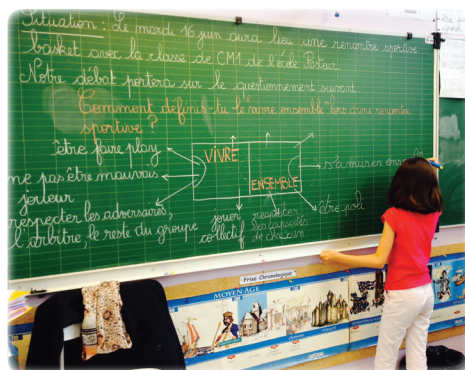 Situation : Le mardi 16 juin aura lieu une rencontre sportive
basket avec la classe de CM1 de l'école Pasteur.
Notre débat portera sur le questionnement suivant
Comment définis-tu le "vivre ensemble" lors d'une rencontre
sportive ?
être faire play
ne pas être mauvais
joueur
respecter les adversaires,
l'arbitre, le reste du groupe
VIVRE
ENSEMBLE
jouer
collectif
respecter
les capacités
de chacun
être poli
s'amuser
Frise Chronologique
MOYEN ÂGE